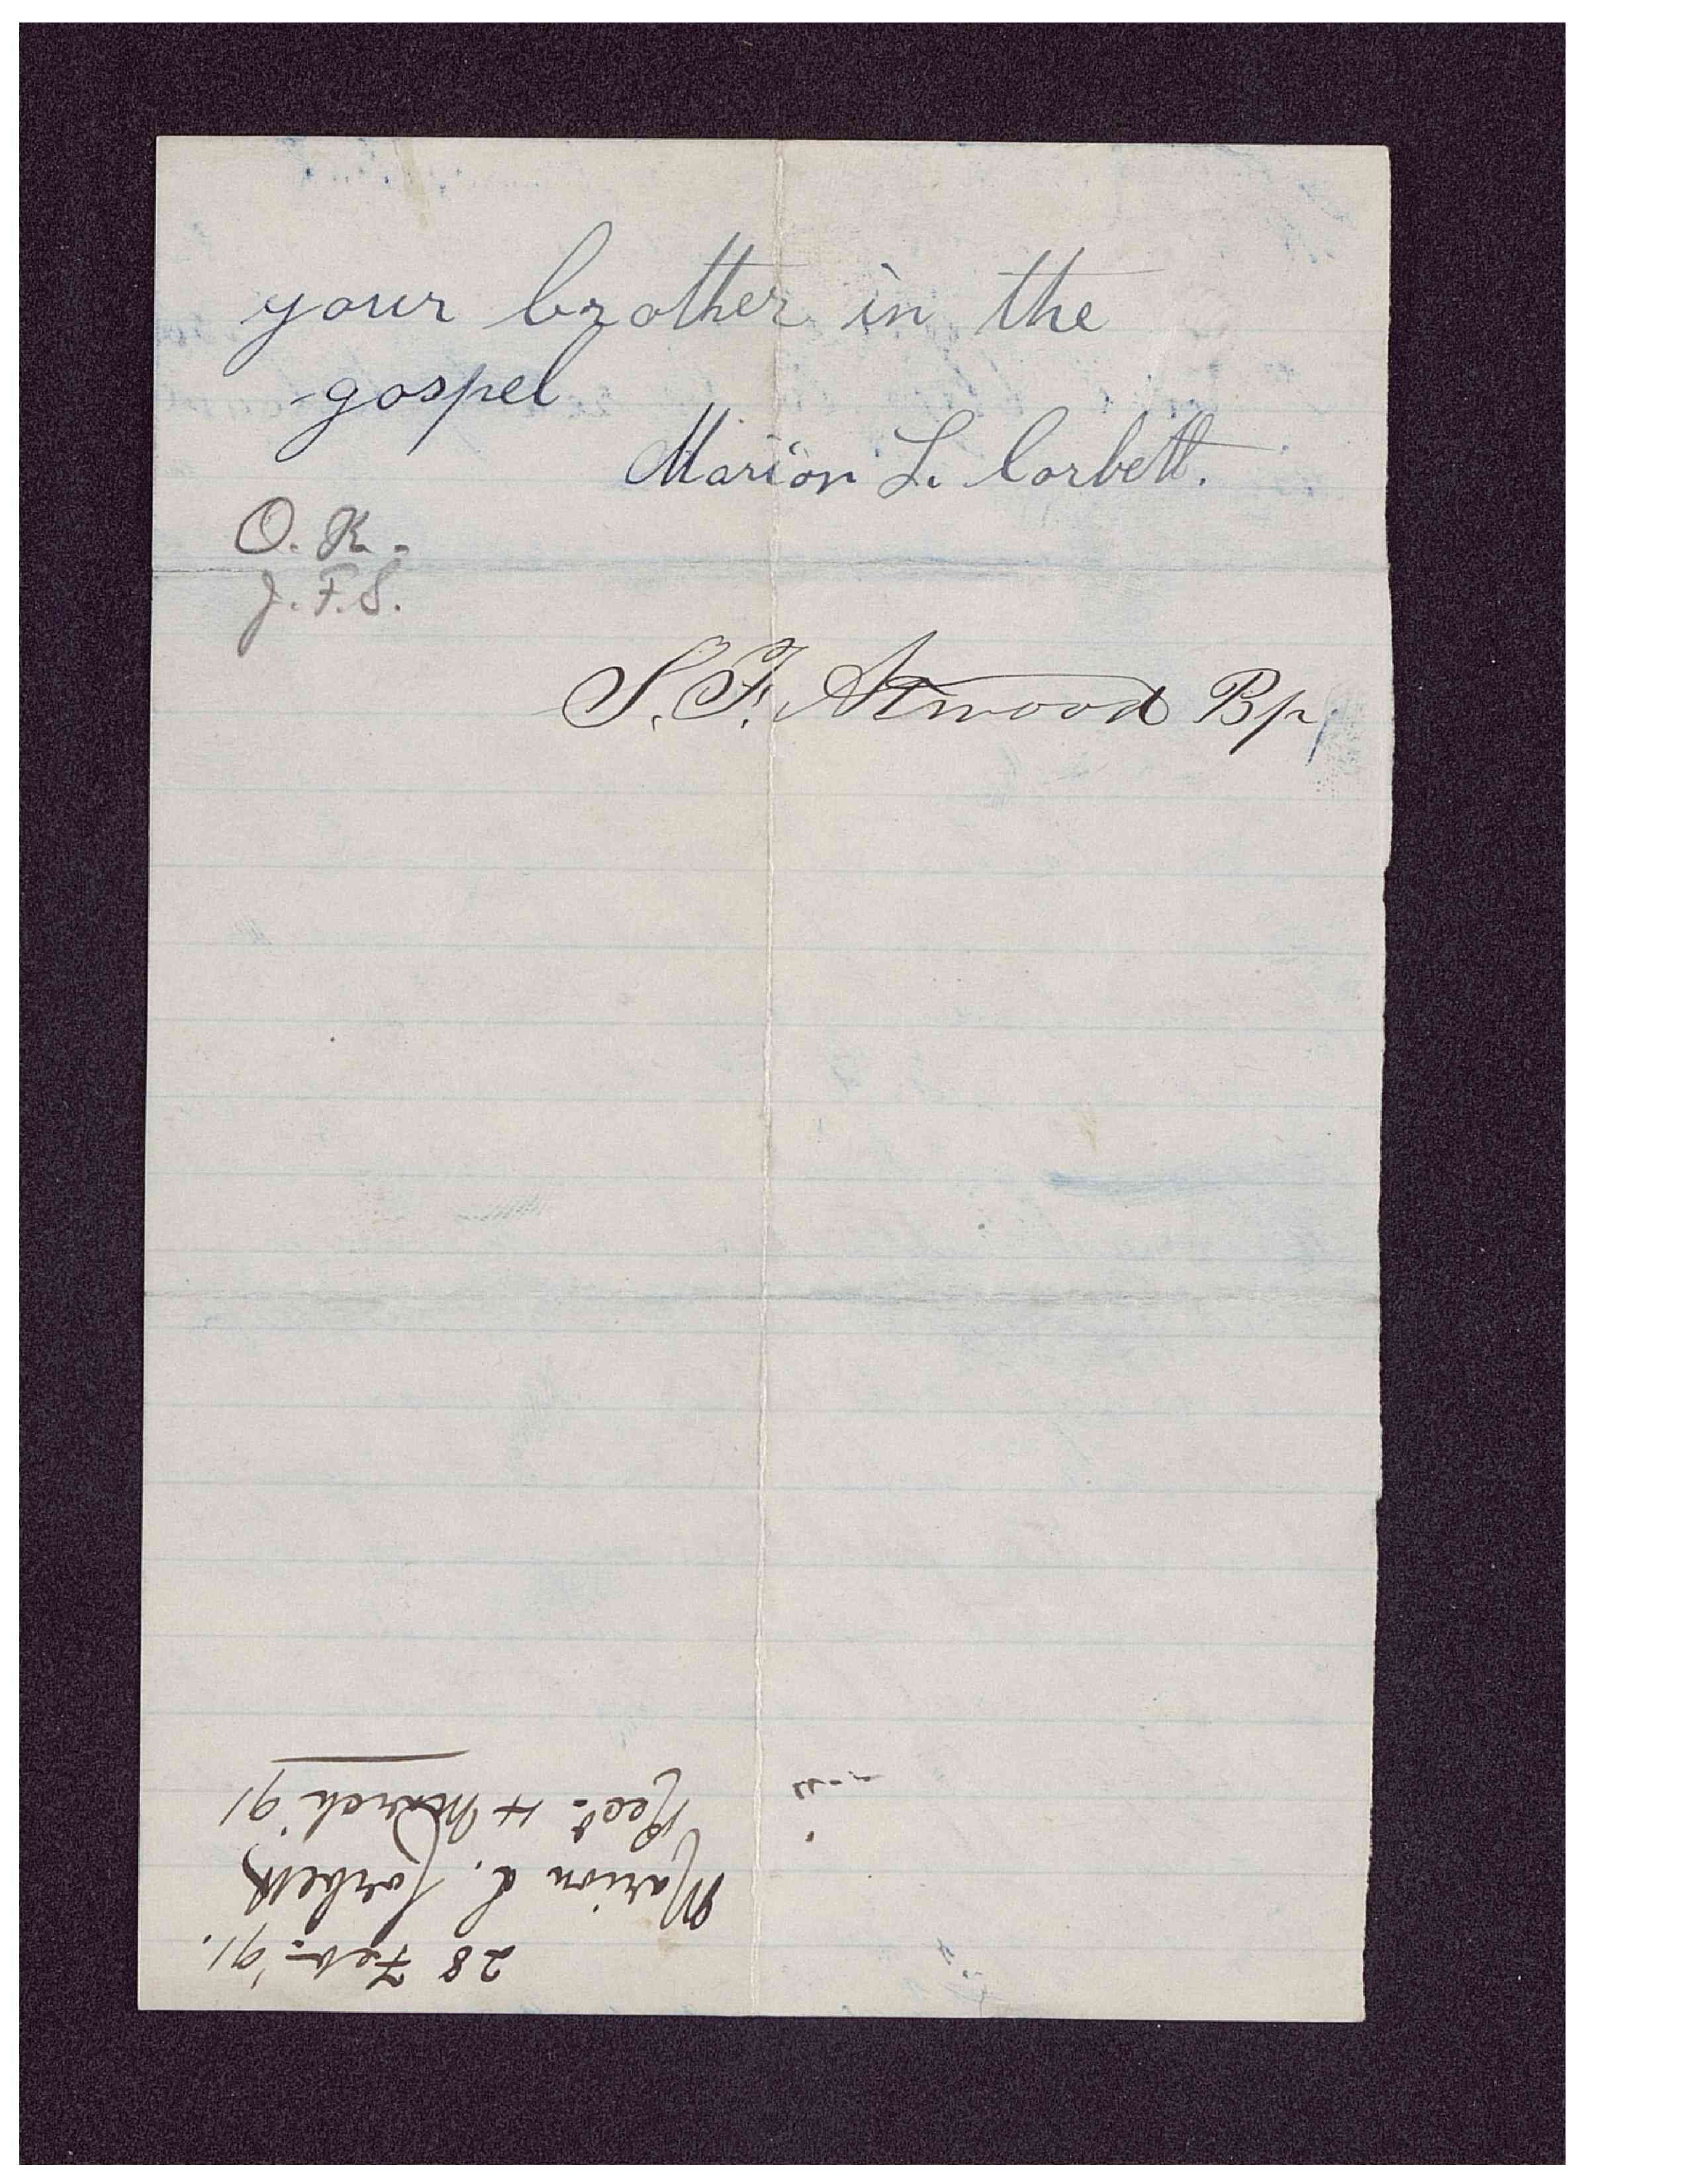 your brother in the
gospel
Marion L. Corbett.
O. K.
J. F. S.
S. F. Atwood Bp
28 Feb. '91.
Marion L. Corbett
Recd. 4 March '91